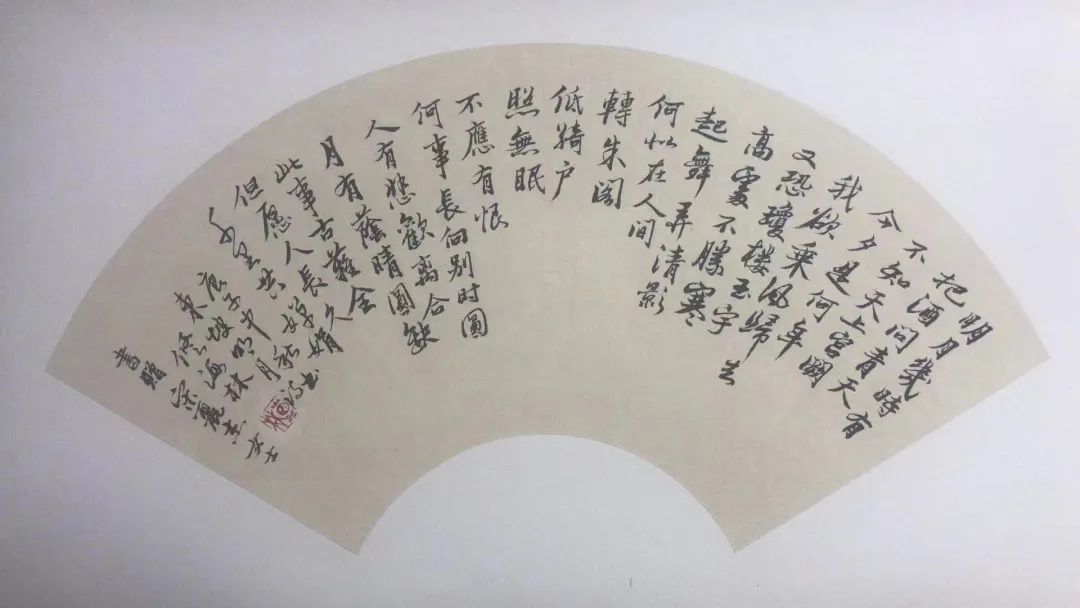 明月幾時有
把酒問青天
不知天上宮闕
今夕是何年
我欲乘风歸去
又恐瓊楼玉宇
高處不勝寒
起舞弄清影
何似在人间
轉朱閣
低綺户
照無眠
不應有恨
何事長向别时圓
人有悲歡離合
月有蔭晴圓缺
此事古難全
但愿人長久
千里共嬋娟
庚子中秋书
東坡明月
書贈